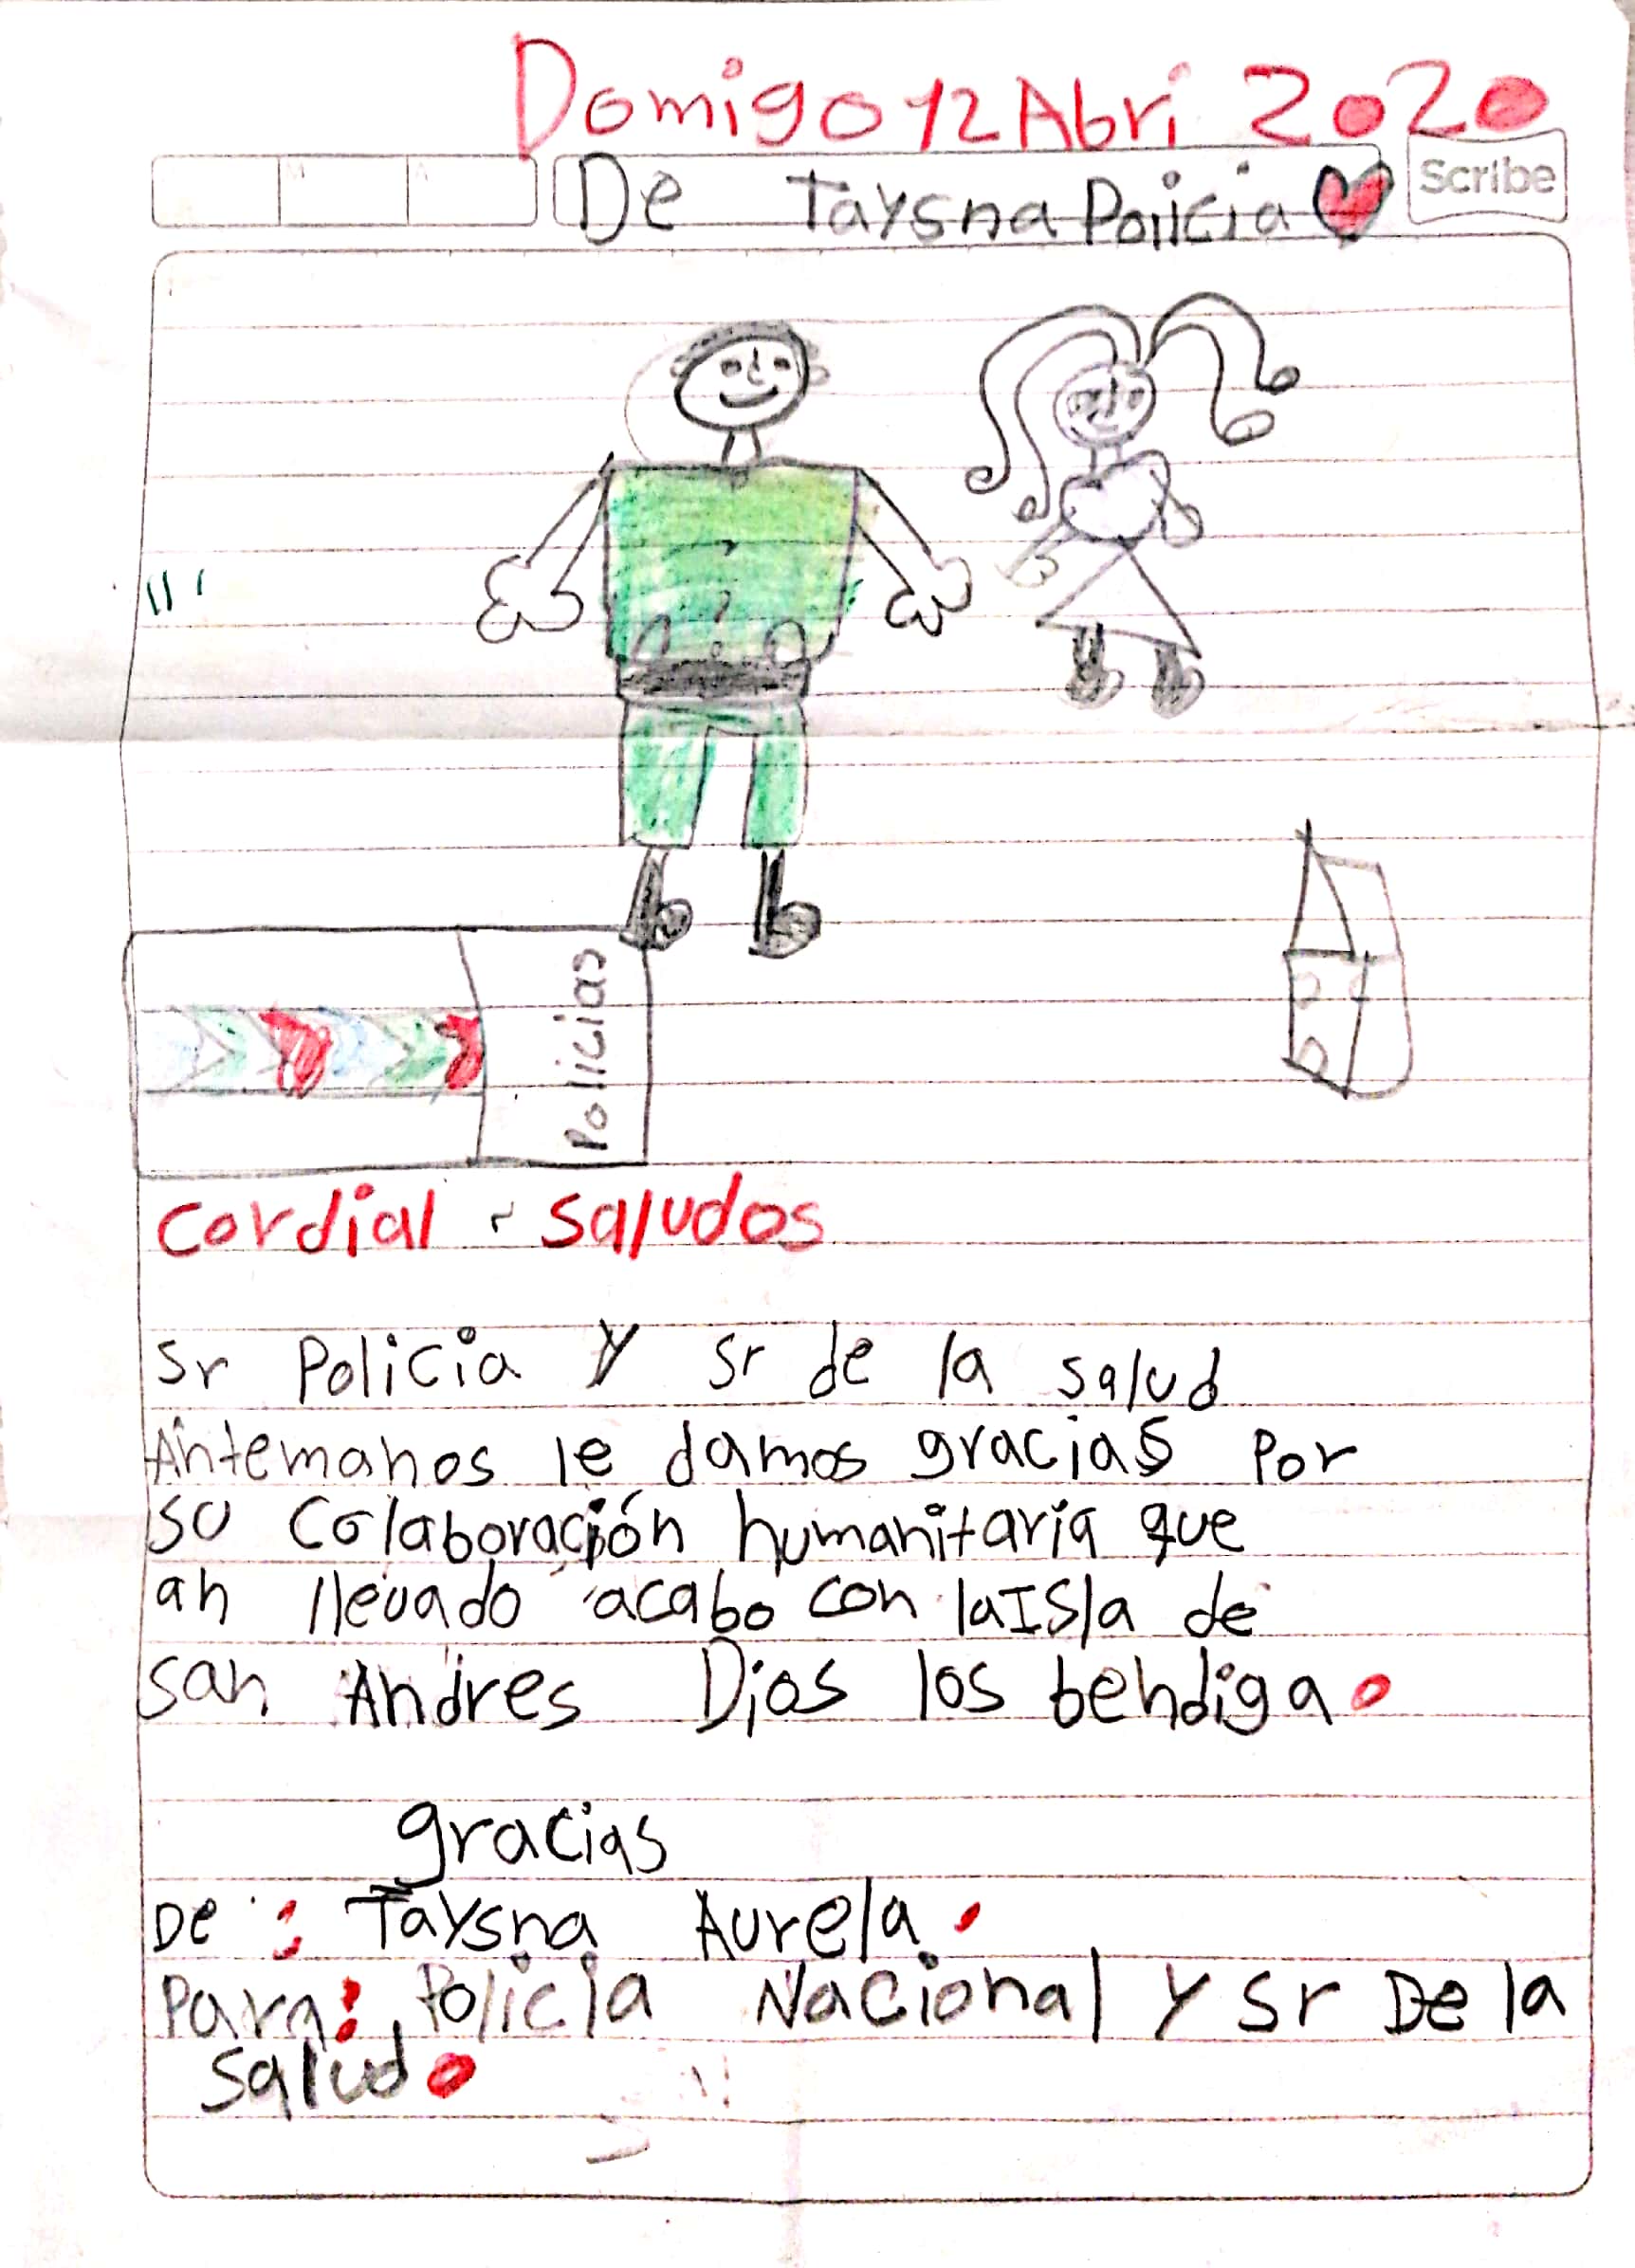 Domigo 12 Abri 2020
De Taysna Policia
Scribe
Policias
Cordial - saludos
Sr Policia y sr de la salud
Antemanos le damos gracias por
su colaboración humanitaria que
an llevado acabo con la Isla de
san Andres Dios los bendiga.
gracias
De: Taysna Aurela.
Para: Policia Nacional y sr De la
salud.